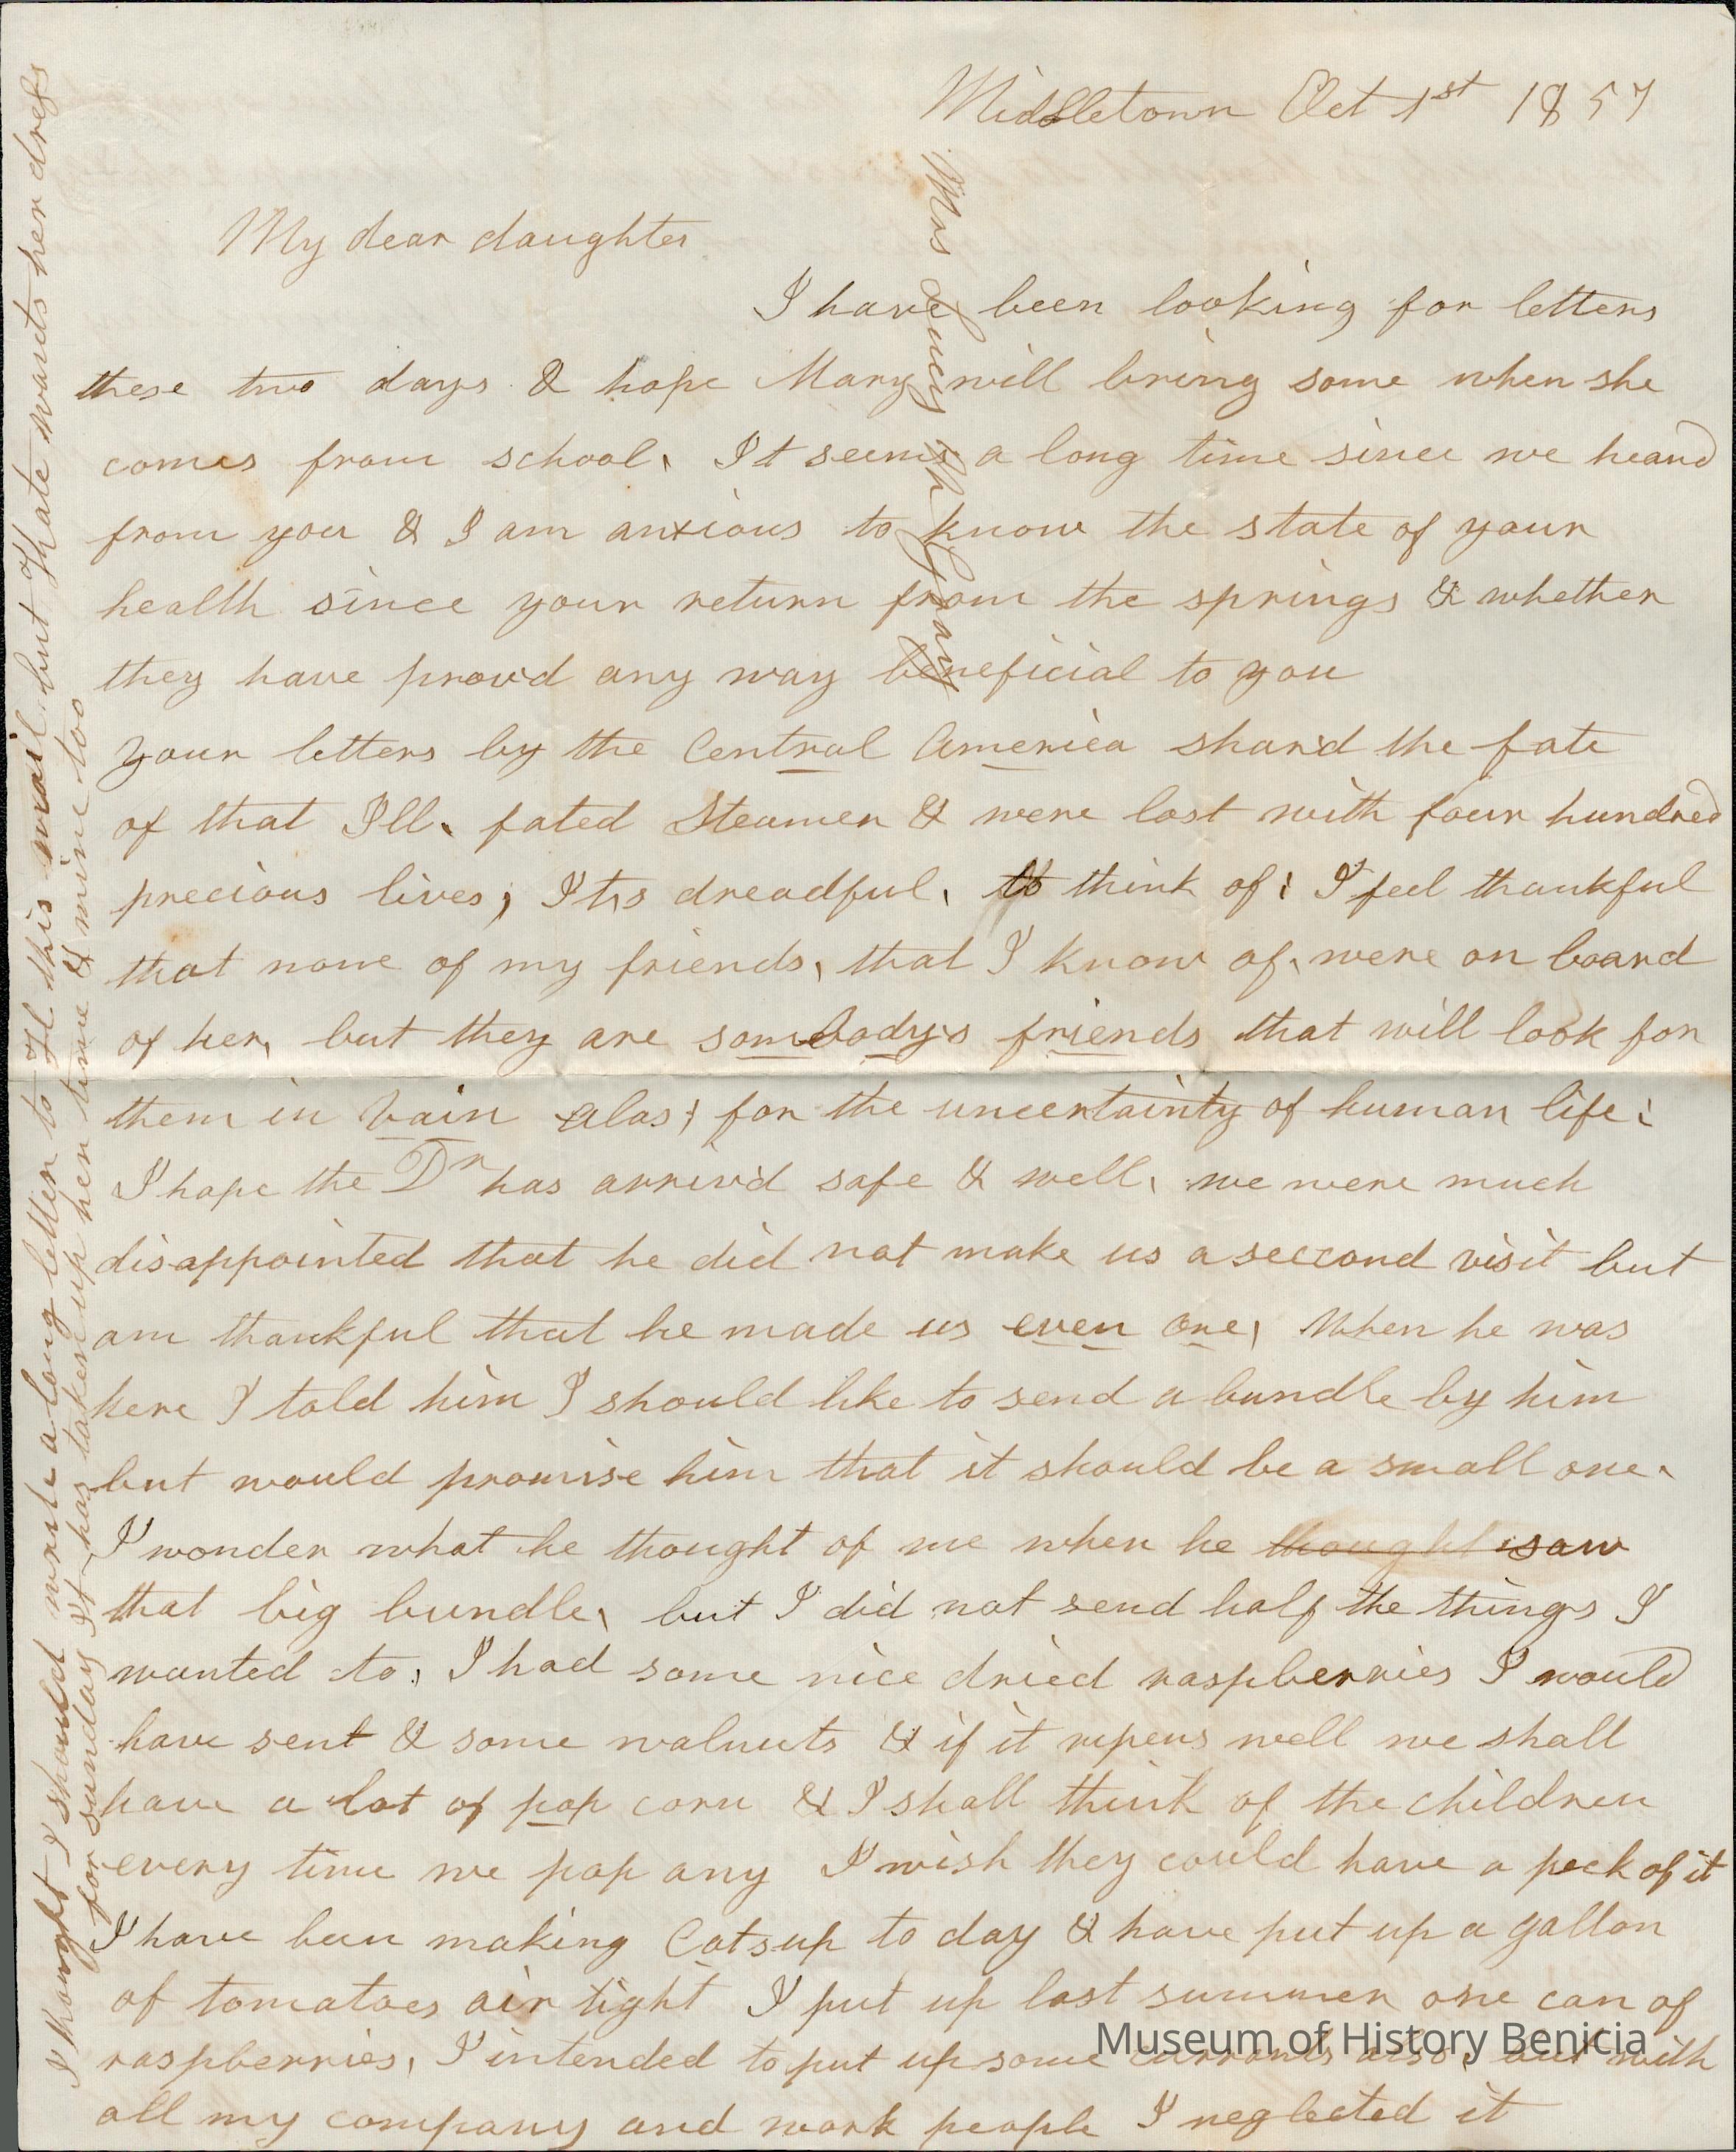 Middletown Oct 1st 1857
My dear daughter
I have been looking for letters
these two days & hope Mary will bring some when she
comes from school. It seems a long time since we heard
from you & I am anxious to know the state of your
health since your return from the springs & whether
they have prov'd any way beneficial to you
Your letters by the Central America shar'd the fate
of that Ill. fated Steamer & were lost with four hundred
precious lives; Its dreadful, to think of: I feel thankful
that none of my friends, that I know of, were on board
of her, but they are sombodys friends that will look for
them in vain alas; for the uncertainty of human life:
I hope the Dr has arriv'd safe & well, we were much
disappointed that he did not make us a seccond visit but
am thankful that he made us even one, When he was
here I told him I should like to send a bundle by him
but would promise him that it should be a small one.
I wonder what he thought of me when he thought saw
that big bundle, but I did not send half the things I
wanted to, I had some nice dried raspberries I would
have sent & some walnuts & if it ripens well we shall
have a lot of pop corn & I shall think of the children
every time we pop any I wish they could have a peck of it
I have been making Catsup to day & have put up a gallon
of tomatoes air tight I put up last summer one can of
raspberries, I intended to put up some currants also, but with
all my company and work people I neglected it
Mrs Lucy Gray
I thought I should write a long letter to H this mail but Kate wants her dress
for sunday It has taken up her time & mine too
Museum of History Benicia